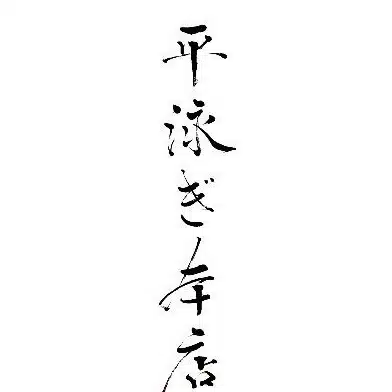 平泳ぎ本店